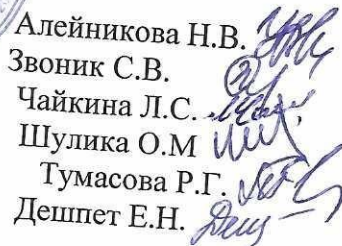 Алейникова Н.В.
Звоник С.В.
Чайкина Л.С.
Шулика О.М
Тумасова Р.Г.
Дешпет Е.Н.